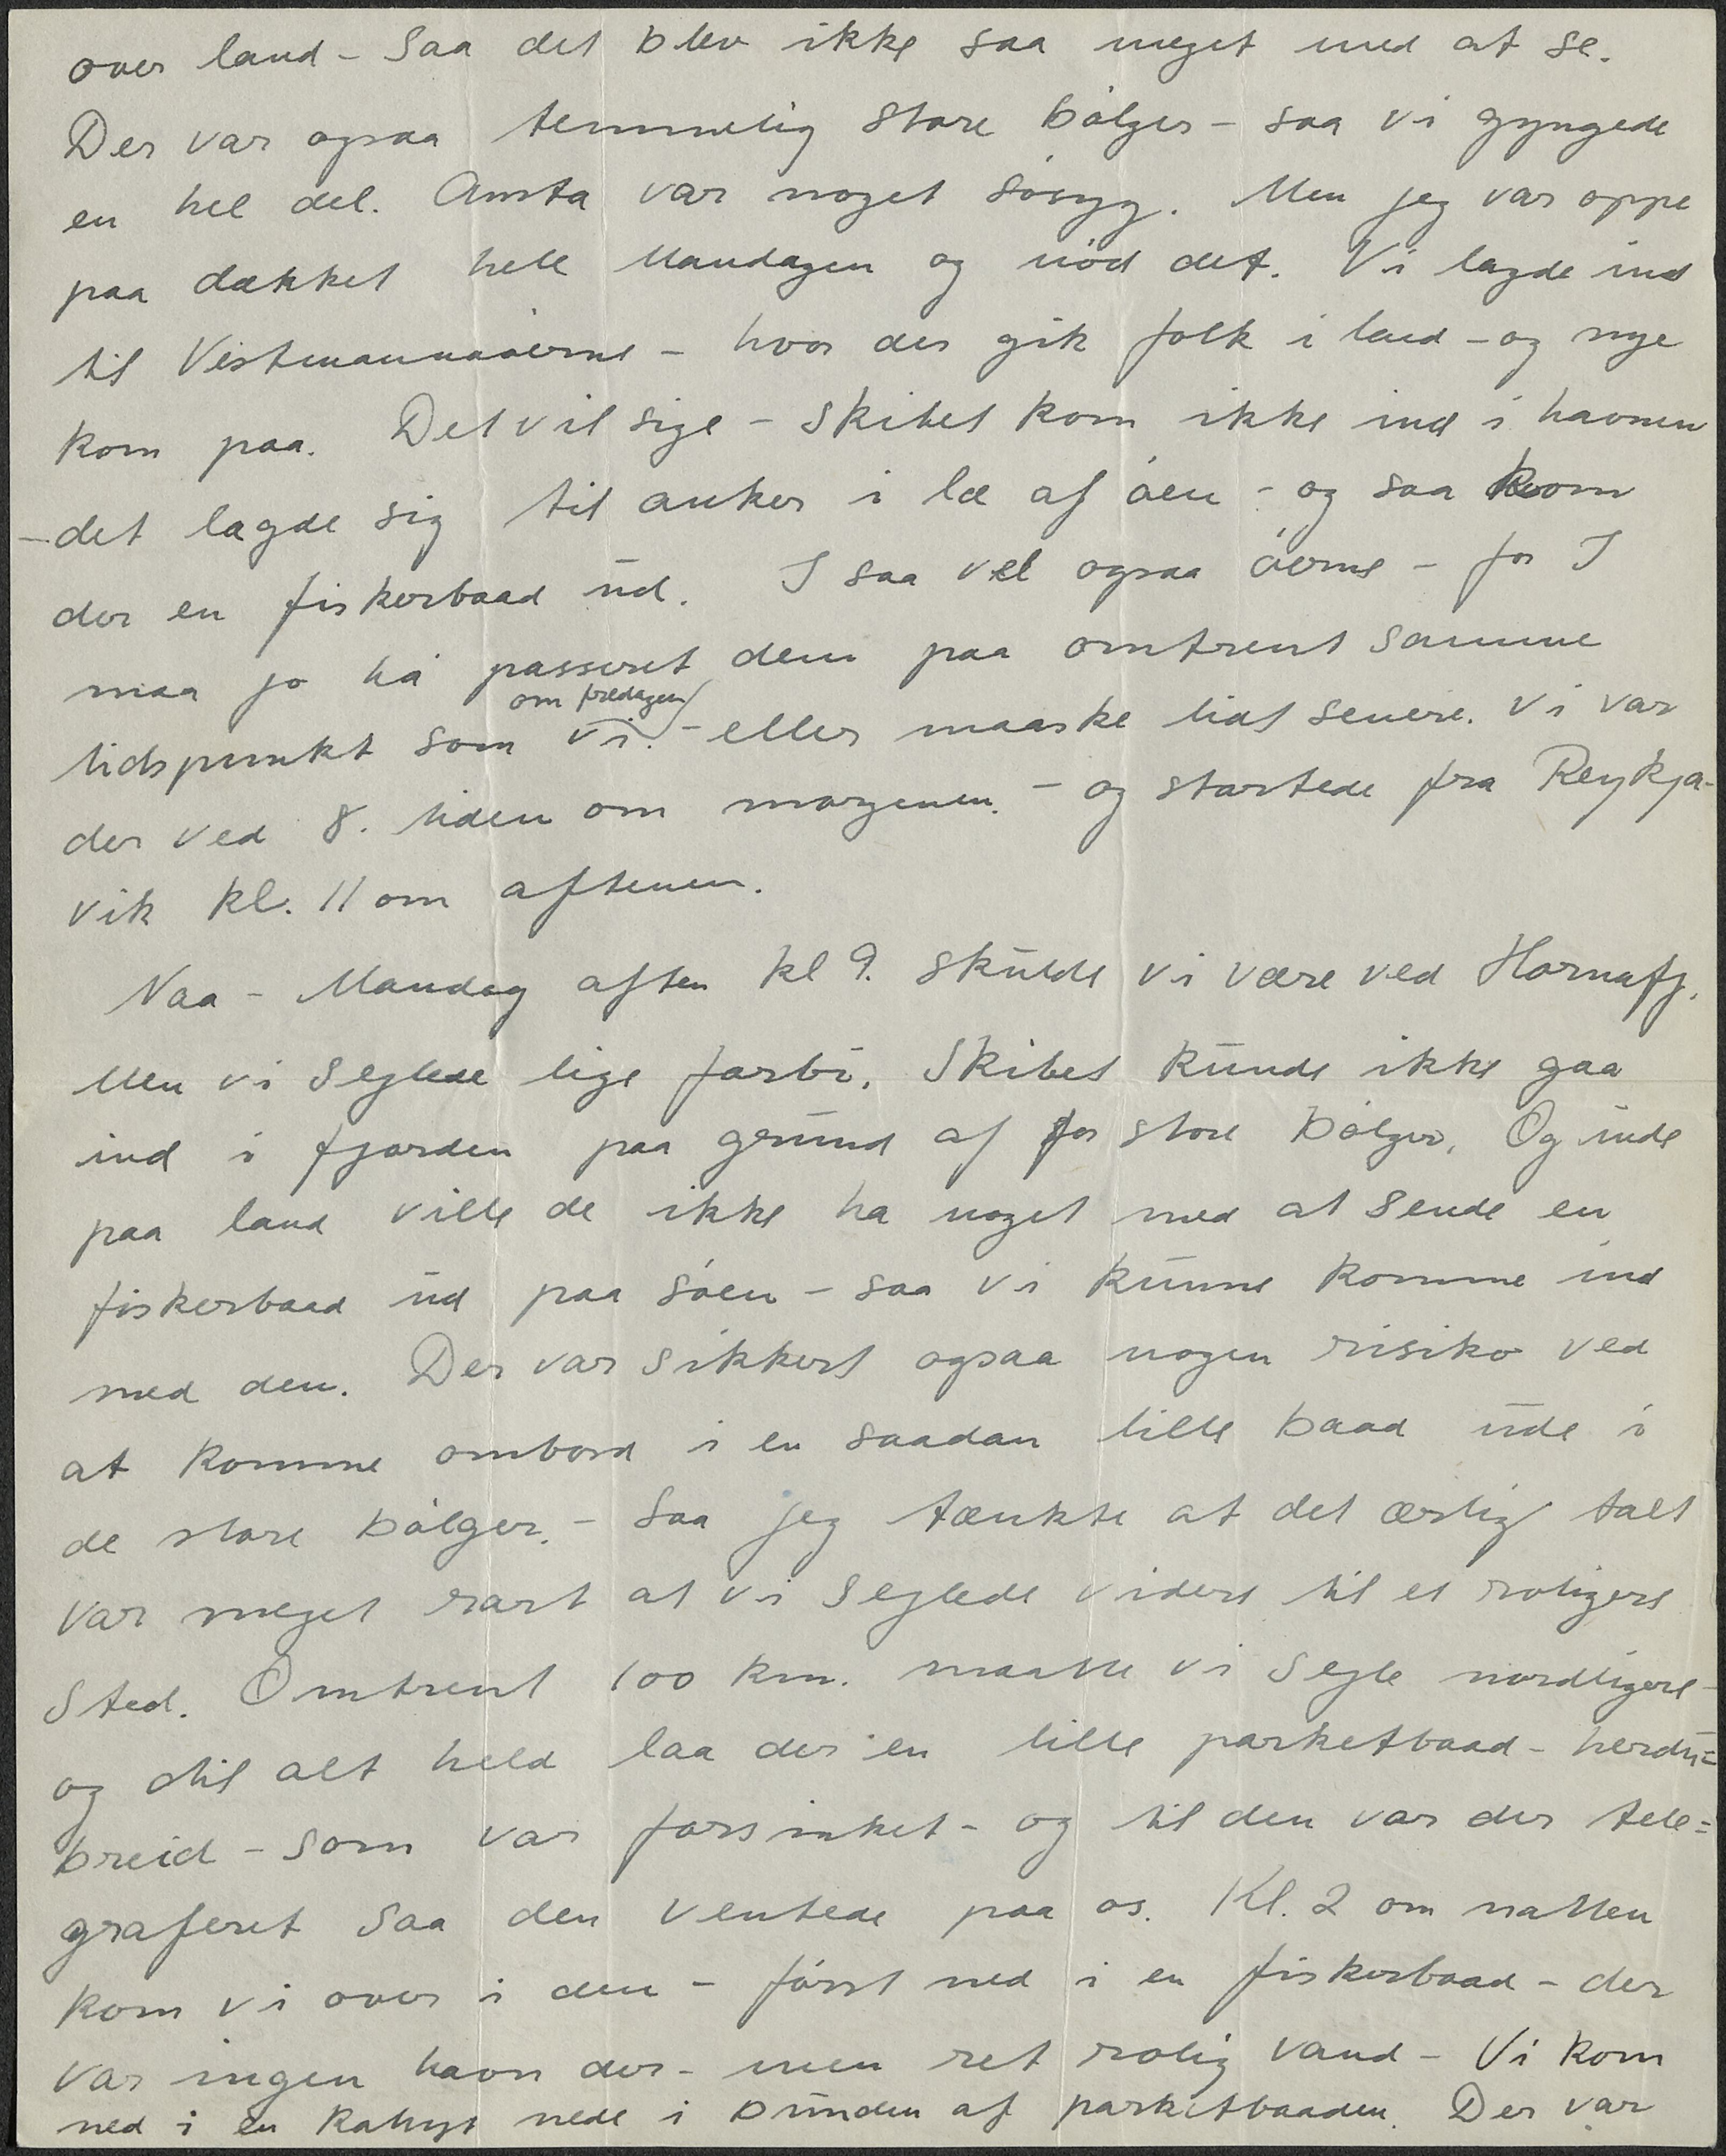 over land - Saa det blev ikke saa meget med at se.
Der var ogsaa temmelig store bólger - saa vi gyngede
en hel del. Amta var noget sósyg. Men jeg var oppe
paa dækket hele Mandagen og nód det. Vi lagde ind
til Vestmannaóerne - hvor der gik folk i land - og nye
kom paa. Det vil sige - Skibet kom ikke ind i havnen
- det lagde sig til anker i læ af óen - og saa kom
der en fiskerbaad ud. I saa vel ogsaa óerne - for I
maa jo ha passeret dem paa omtrent samme
om fredagen
tidspunkt som vi. - eller maaske lidt senere. Vi var
der ved 8. tiden om morgenen. - og startede fra Reykja-
vik kl. 11 om aftenen.
Naa - Mandag aften kl 9. skulde vi være ved Hornafj.
Men vi sejlede lige forbi. Skibet kunde ikke gaa
ind i fjorden paa grund af for store bólger. Og inde
paa land ville de ikke ha noget med at sende en
fiskerbaad ud paa sóen - saa vi kunne komme ind
med den. Der var sikkert ogsaa nogen risiko ved
at komme ombord i en saadan lille baad ude i
de store bólger. - Saa jeg tænkte at det ærlig talt
var meget rart at vi sejlede videre til et roligere
Sted. Omtrent 100 km. maatte vi sejle nordligere -
og til alt held laa der en lille parketbaad - herdu=
breid - som var forsinket - og til den var der tele=
graferet saa den ventede paa os. Kl. 2 om natten
kom vi over i den - fórst ned i en fiskerbaad - der
var ingen havn der - men ret rolig vand - Vi kom
ned i en Kahyt nede i bunden af parketbaaden. Der var